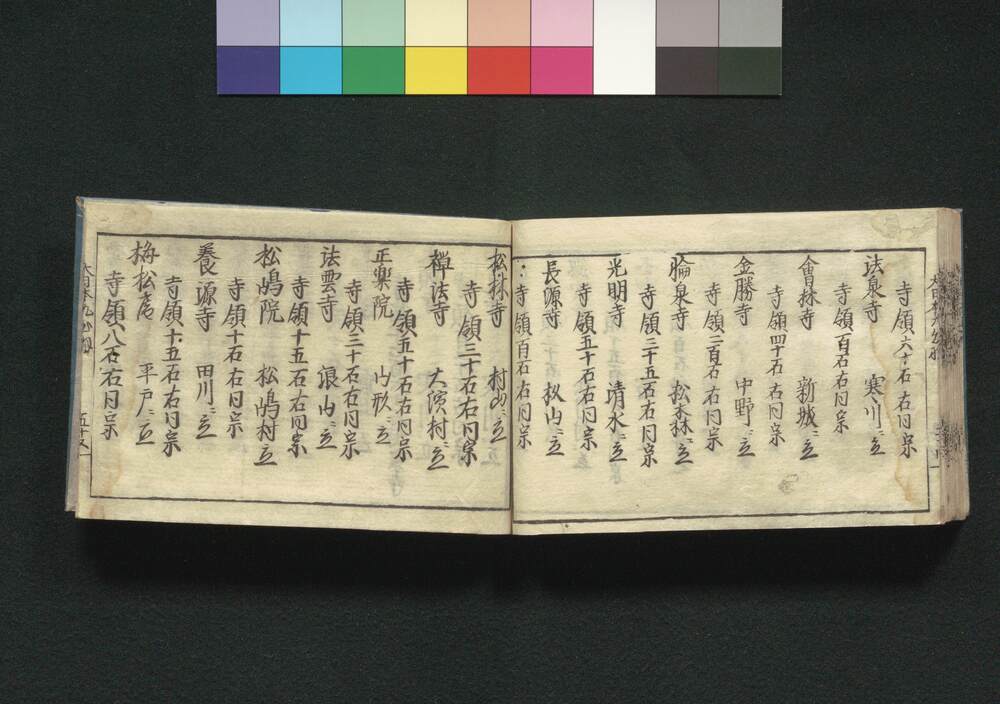 寺領六十石右同宗
法泉寺 寒川ニ立
寺領百石右同宗
會林寺 新城ニ立
寺領四十石右同宗
金勝寺 中野ニ立
寺領二百石右同宗
輪泉寺 松森ニ立
寺領二十五石右同宗
光明寺 清水ニ立
寺領五十石右同宗
長源寺 山ニ立
寺領百石右同宗
松林寺 村山ニ立
寺領三十石右同宗
禅法寺 大濱村ニ立
寺領五十石右同宗
正楽院 山形ニ立
寺領三十石右同宗
法雲寺 浪山ニ立
寺領十五石右同宗
松嶋院 松嶋村ニ立
寺領十石右同宗
養源寺 田川ニ立
寺領十五石右同宗
梅松庵 平戸ニ立
寺領八石右同宗